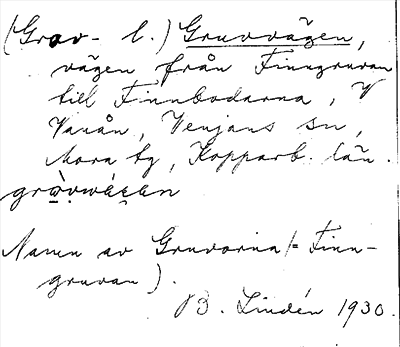 (Grov- l.) Gruvvägen,
vägen från Finngruvan
till Finnbodarna, V
Vanån, Venjans sn,
Mora tg, Kopparb. län.
grò̤vwéɛ̀ɛn
Namn av Gruvorna (= Finn-
gruvan).
B. Lindén 1930.